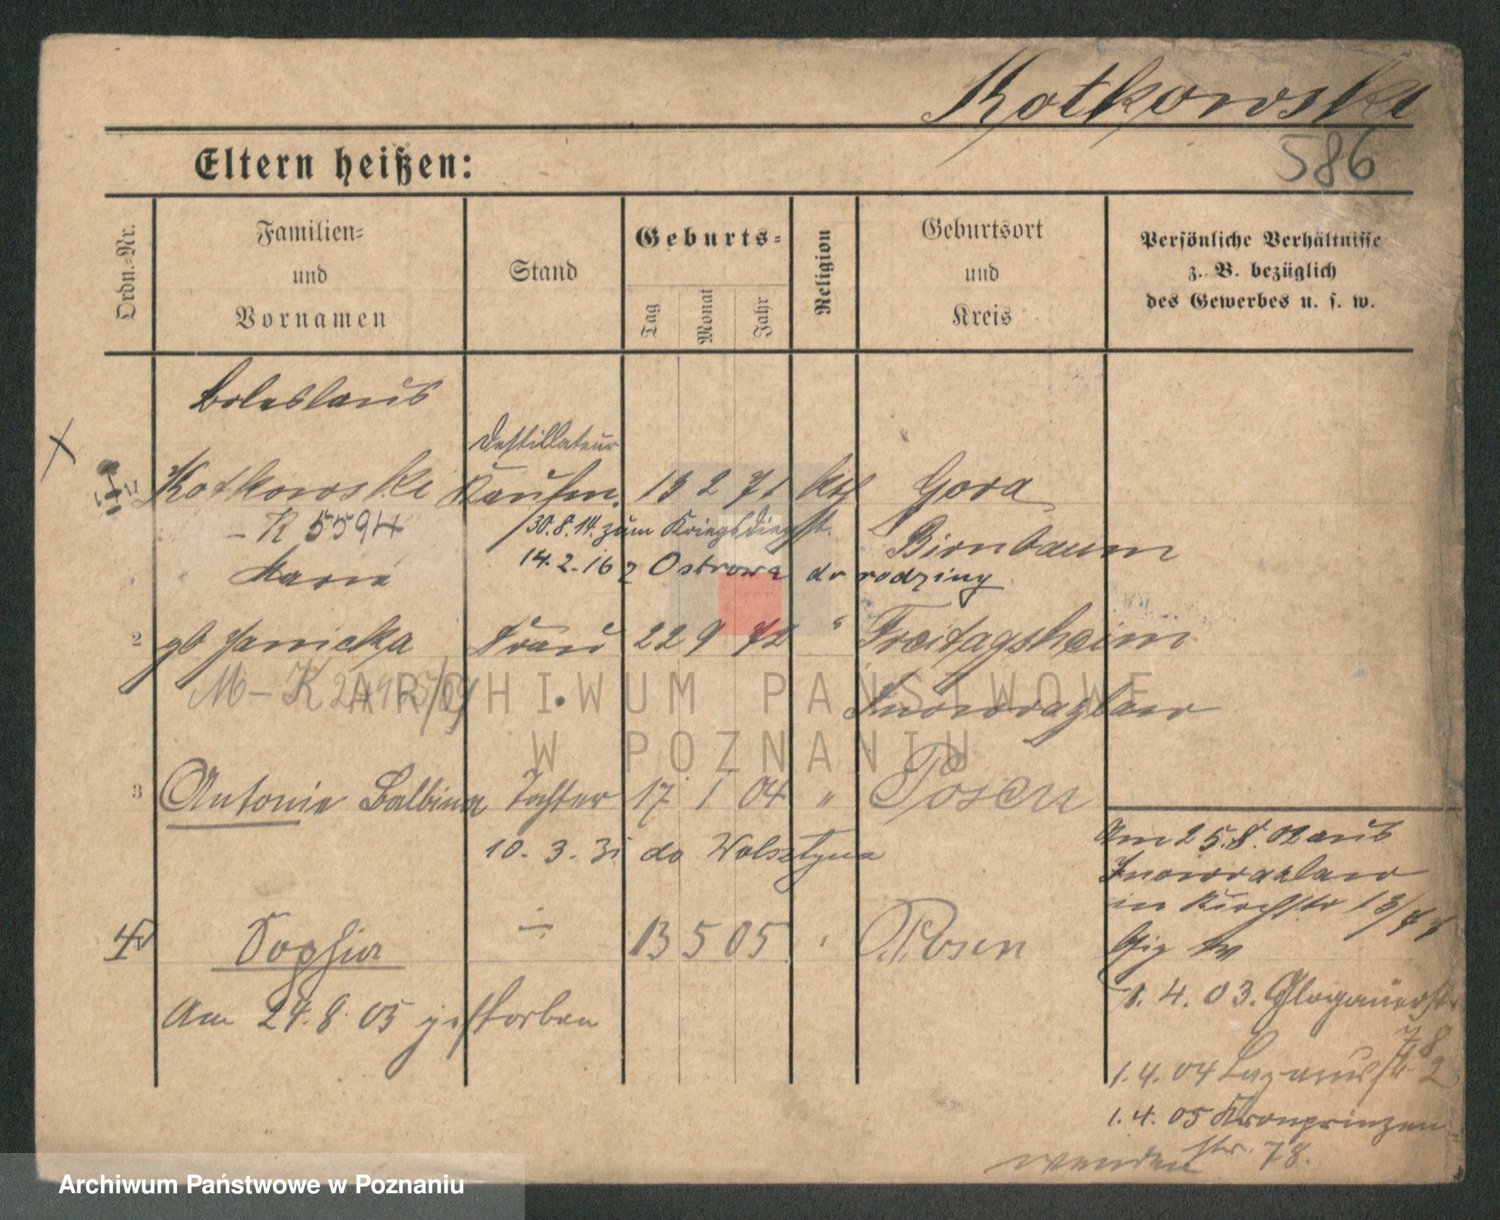 Kotkowski
Eltern heißen:
586
Ordn.-Nr.
Familien-
und
Vornamen
Stand
Geburts-
Tag
Monat
Jahr
Religion
Geburtsort
und
Kreis
Persönliche Verhältnisse
z. B. bezüglich
des Gewerbes u. s. w.
Boleslaus
Destillateur
Kotkowski Kaufm. 13 2 71 kth Gora
- K 5594 30.8.14. zum Kriegsdienst.
Birnbaum
14.2.16 z Ostrowa do rodziny
Maria
2 gb Janicka Frau 22 9 72 " Freitagsheim
M-K
Inowrazlaw
3 Antonie Balbina Tochter 17 1 04 " Posen
10. 3. 31 do Wolsztyna
4 Sophia - 13 5 05 " Posen
Am 24.8.05 gestorben
Am 25.8.02 aus
Inowrazlaw
in Kirchstr
1. 4. 03. Glogauerstr
78
1.4.04 Lazarusstr. 2
1.4.05 Kronprinzen
str. 78.
wenden
ARCHIWUM PAŃSTWOWE
W POZNANIU
Archiwum Państwowe w Poznaniu